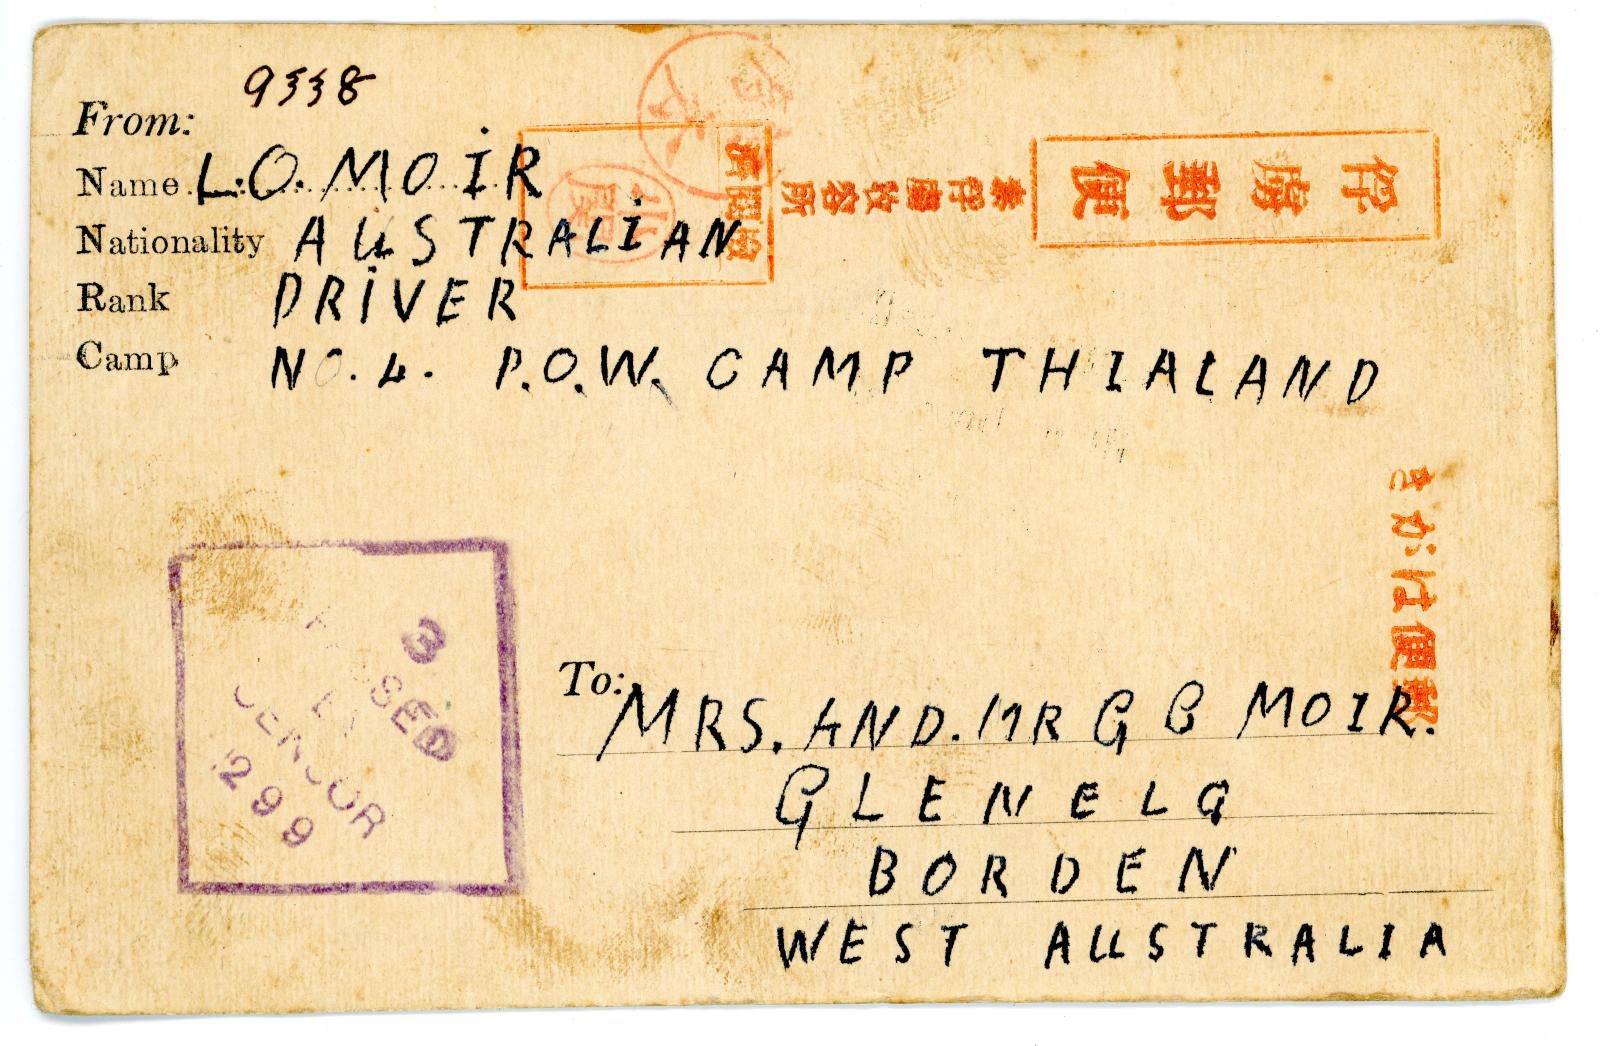 9338
From:
Name L.O. MOIR
Nationality AUSTRALIAN
Rank DRIVER
Camp NO. 4. P.O.W. CAMP THIALAND
俘虜郵便
泰俘虜收容所
郵便はがき
PASSED
BY
CENSOR
299
3
To: MRS. AND. MR G B MOIR.
GLENELG
BORDEN
WEST AUSTRALIA